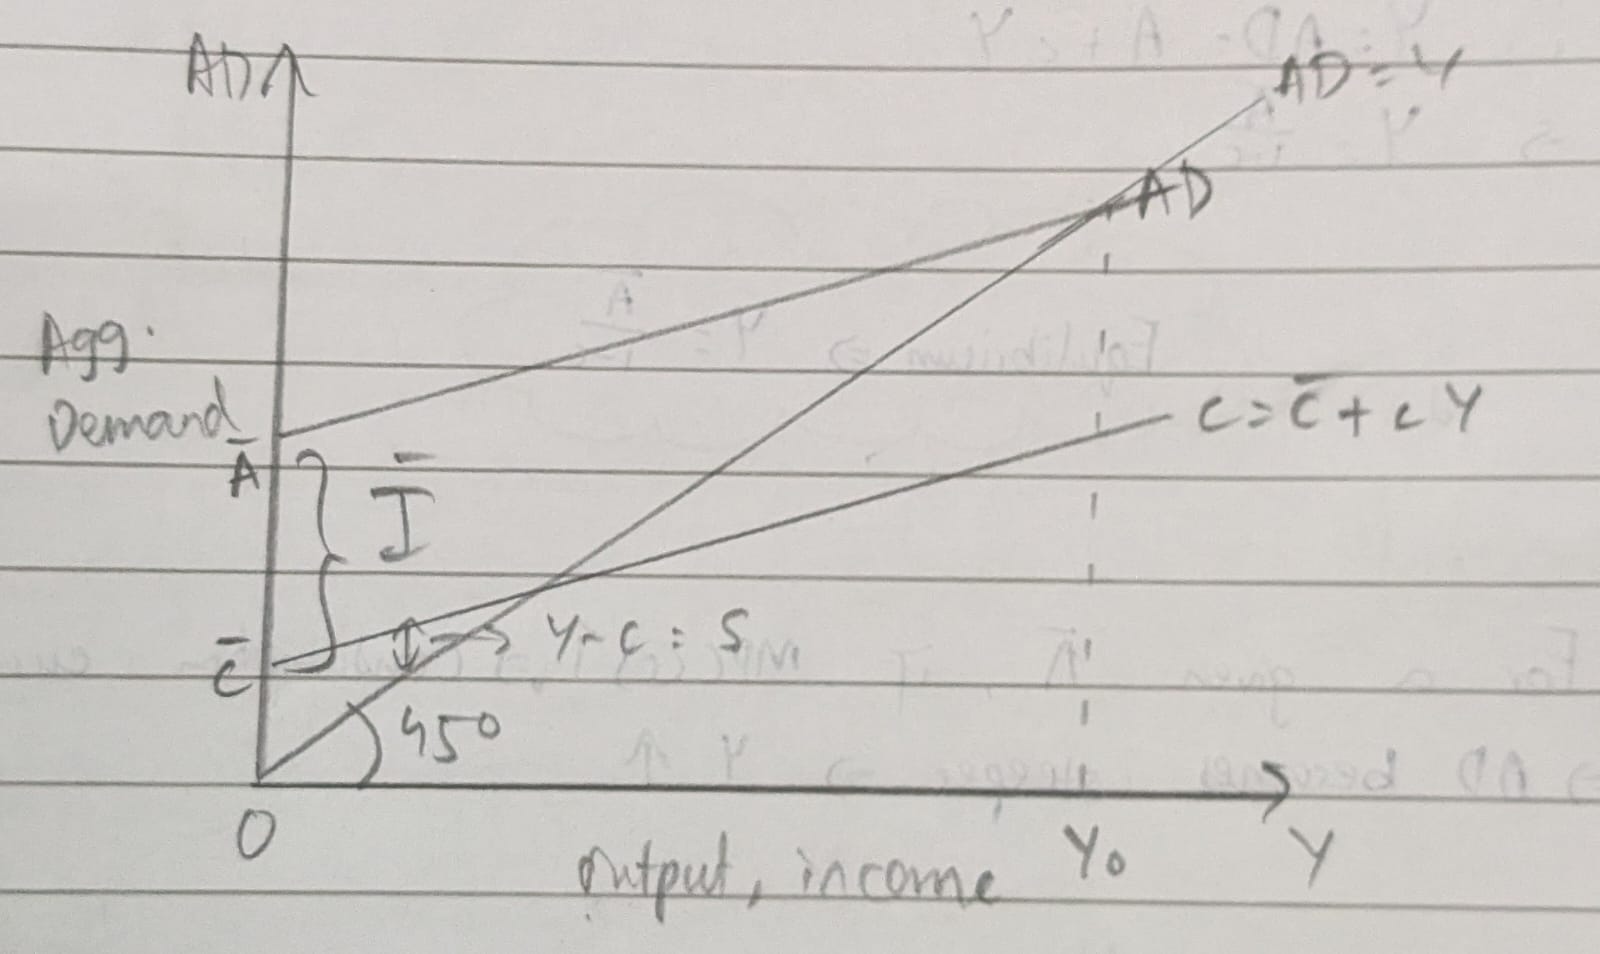 AD
AD = Y
AD
Agg.
Demand
Ā
Ī
C = C̄ + cY
C̄
Y - C = S
45°
O
Y₀
Y
output, income